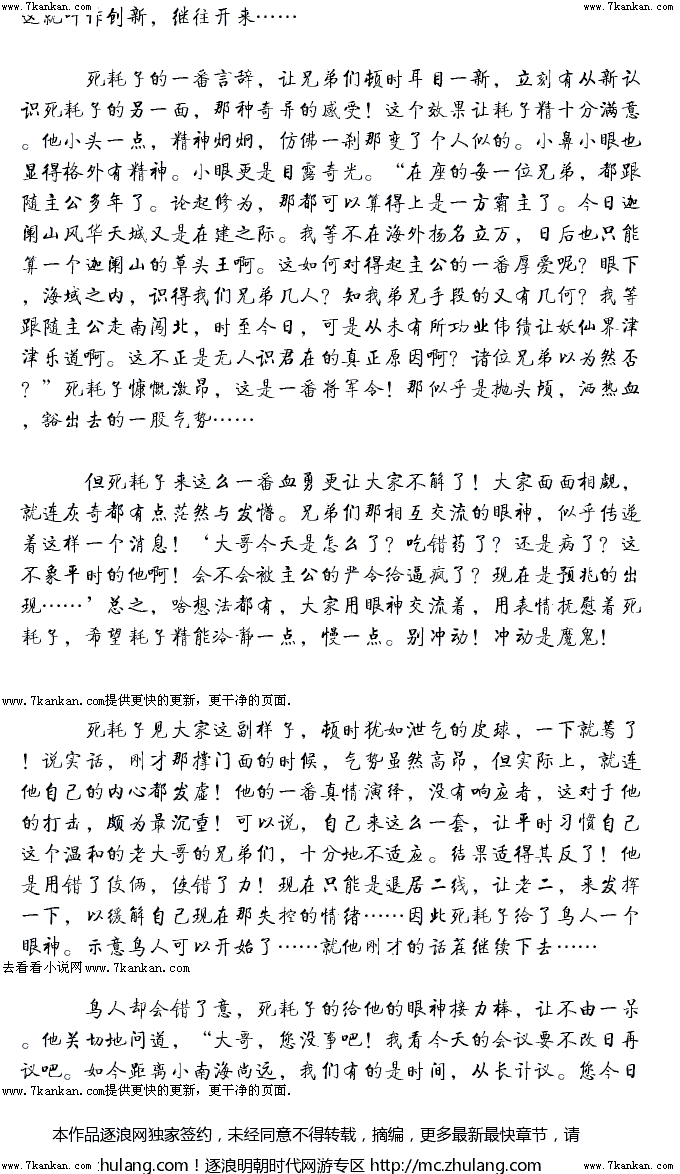 www.7kankan.com www.7kankan.com
这就叫作创新，继往开来……
死耗子的一番言辞，让兄弟们顿时耳目一新，立刻有从新认
识死耗子的另一面，那种奇异的感受！这个效果让耗子精十分满意
。他小头一点，精神炯炯，仿佛一刹那变了个人似的。小鼻小眼也
显得格外有精神。小眼更是目露奇光。“在座的每一位兄弟，都跟
随主公多年了。论起修为，那都可以算得上是一方霸主了。今日迦
阑山风华天城又是在建之际。我等不在海外扬名立万，日后也只能
算一个迦阑山的草头王啊。这如何对得起主公的一番厚爱呢？眼下
，海域之内，识得我们兄弟几人？知我弟兄手段的又有几何？我等
跟随主公走南闯北，时至今日，可是从未有所功业伟绩让妖仙界津
津乐道啊。这不正是无人识君在的真正原因啊？诸位兄弟以为然否
？”死耗子慷慨激昂，这是一番将军令！那似乎是抛头颅，洒热血
，豁出去的一股气势……
但死耗子来这么一番血勇更让大家不解了！大家面面相觑，
就连灰奇都有点茫然与发懵。兄弟们那相互交流的眼神，似乎传递
着这样一个消息！‘大哥今天是怎么了？吃错药了？还是病了？这
不象平时的他啊！会不会被主公的严令给逼疯了？现在是预兆的出
现……’总之，啥想法都有，大家用眼神交流着，用表情抚慰着死
耗子，希望耗子精能冷静一点，慢一点。别冲动！冲动是魔鬼！
www.7kankan.com提供更快的更新，更干净的页面.
死耗子见大家这副样子，顿时犹如泄气的皮球，一下就蔫了
！说实话，刚才那撑门面的时候，气势虽然高昂，但实际上，就连
他自己的内心都发虚！他的一番真情演绎，没有响应者，这对于他
的打击，颇为最沉重！可以说，自己来这么一套，让平时习惯自己
这个温和的老大哥的兄弟们，十分地不适应。结果适得其反了！他
是用错了伎俩，使错了力！现在只能是退居二线，让老二，来发挥
一下，以缓解自己现在那失控的情绪……因此死耗子给了鸟人一个
眼神。示意鸟人可以开始了……就他刚才的话茬继续下去……
去看看小说网www.7kankan.com
鸟人却会错了意，死耗子的给他的眼神接力棒，让不由一呆
。他关切地问道，“大哥，您没事吧！我看今天的会议要不改日再
议吧。如今距离小南海尚远，我们有的是时间，从长计议。您今日
www.7kankan.com提供更快的更新，更干净的页面.
本作品逐浪网独家签约，未经同意不得转载，摘编，更多最新最快章节，请
www.7kankan.com zhulang.com！逐浪明朝时代网游专区 http://mc.zhulang.com www.7kankan.com